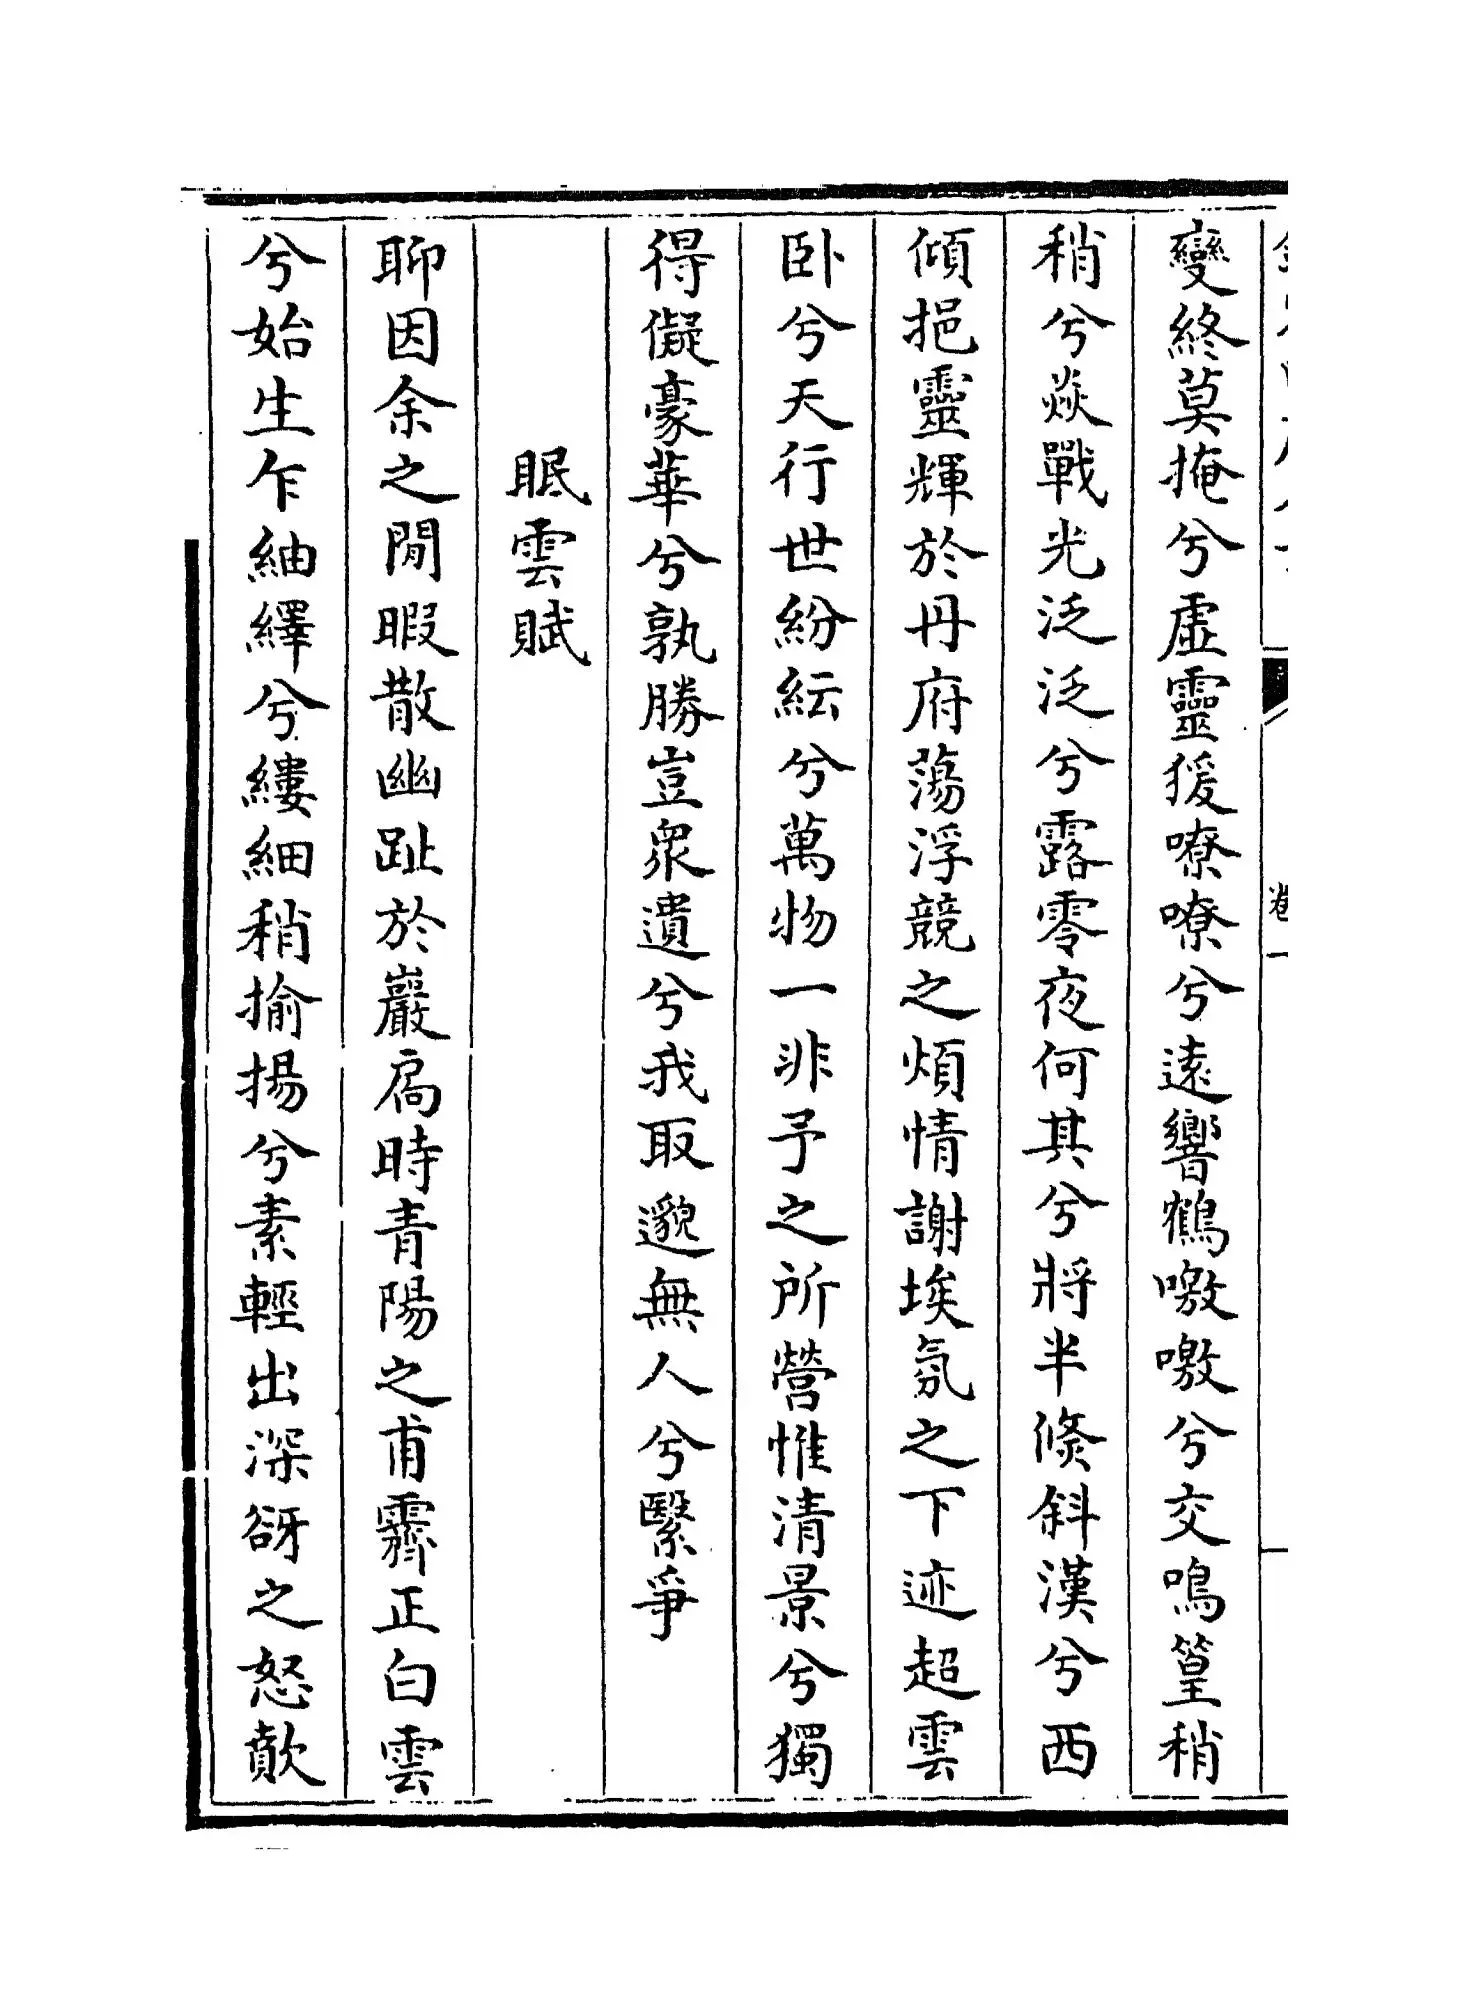 變終莫掩兮虛靈猨嘹嘹兮遠響鶴噭噭兮交鳴篁稍
稍兮焱戰光泛泛兮露零夜何其兮將半倏斜漢兮西
傾挹靈輝於丹府蕩浮競之煩情謝埃氛之下迹超雲
卧兮天行世紛紜兮萬物一非予之所營惟清景兮獨
得儗豪華兮孰勝豈衆遺兮我取邈無人兮繄爭
眠雲賦
聊因余之閒暇散幽趾於巖扃時青陽之甫霽正白雲
兮始生乍紬繹兮縷細稍揄揚兮素輕出深谺之怒歕
卷一